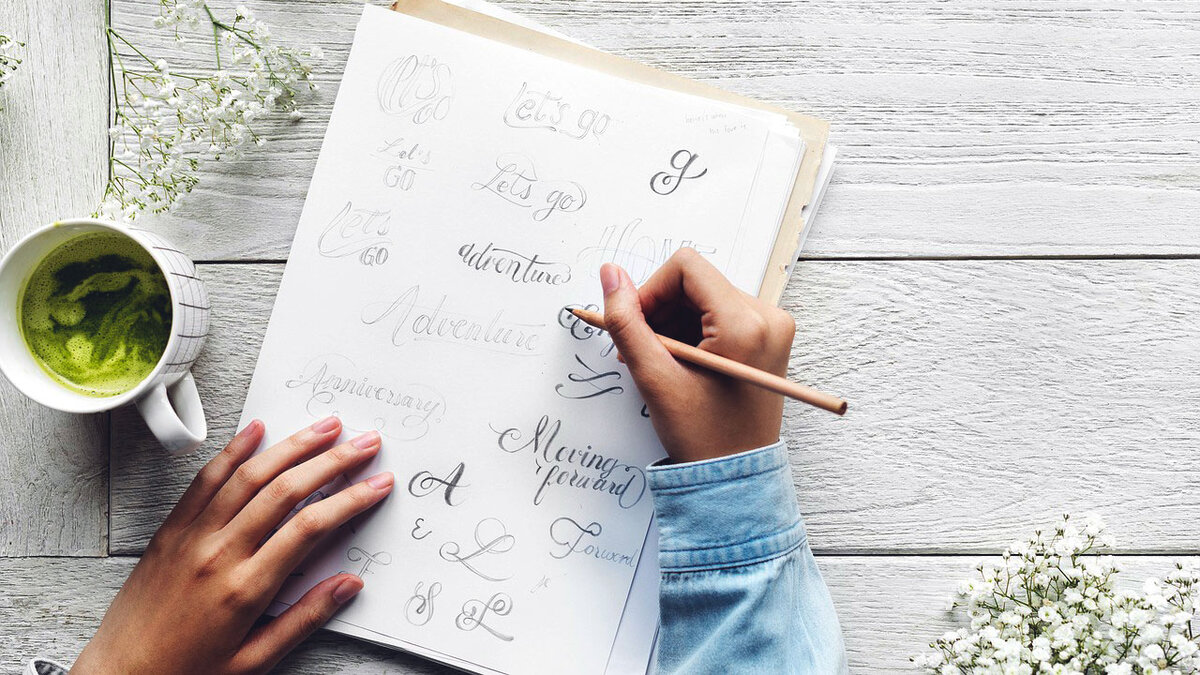 Let's
go
Let's go
Let's
GO
Let's go
g
Let's
GO
adventure
HOME
Adventure
Anniversary
Moving
forward
A
&
L
Forward
F
S
L